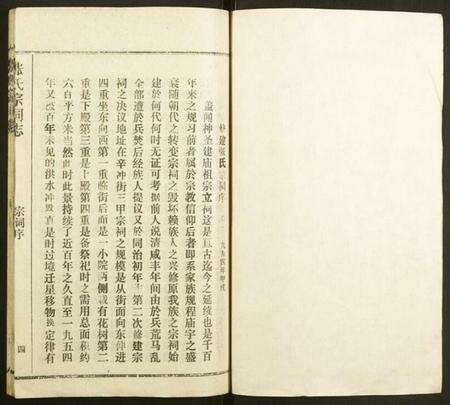 建張氏宗祠序
蓋闻神圣建庙祖宗立祠这是亘古迄今之延续也是千百
年来之规习前者属於宗教信仰后者即系家族规程庙宇之盛
衰随朝代之转变宗祠之毁坏赖族人之兴修原我族之宗祠始
建於何代何时无证可考据前人说清咸丰年间由於兵荒马乱
全部遭於兵焚后经族人提议又於同治初年 第二次修建宗
祠之决议地址在辛冲街三甲宗祠之规模是从街面向东伸进
四重坐东向西第一重临街后面是一小院两侧栽有花树第二
重是下殿第三重是上殿第四重是备祭祀时之需用总面积约
六百平方米当然此时此景持续了近百年之久直至一九五四
年又 百年未见的洪水冲毁 真是时过境迁星移物换定律有
張氏宗祠志
宗祠序
四